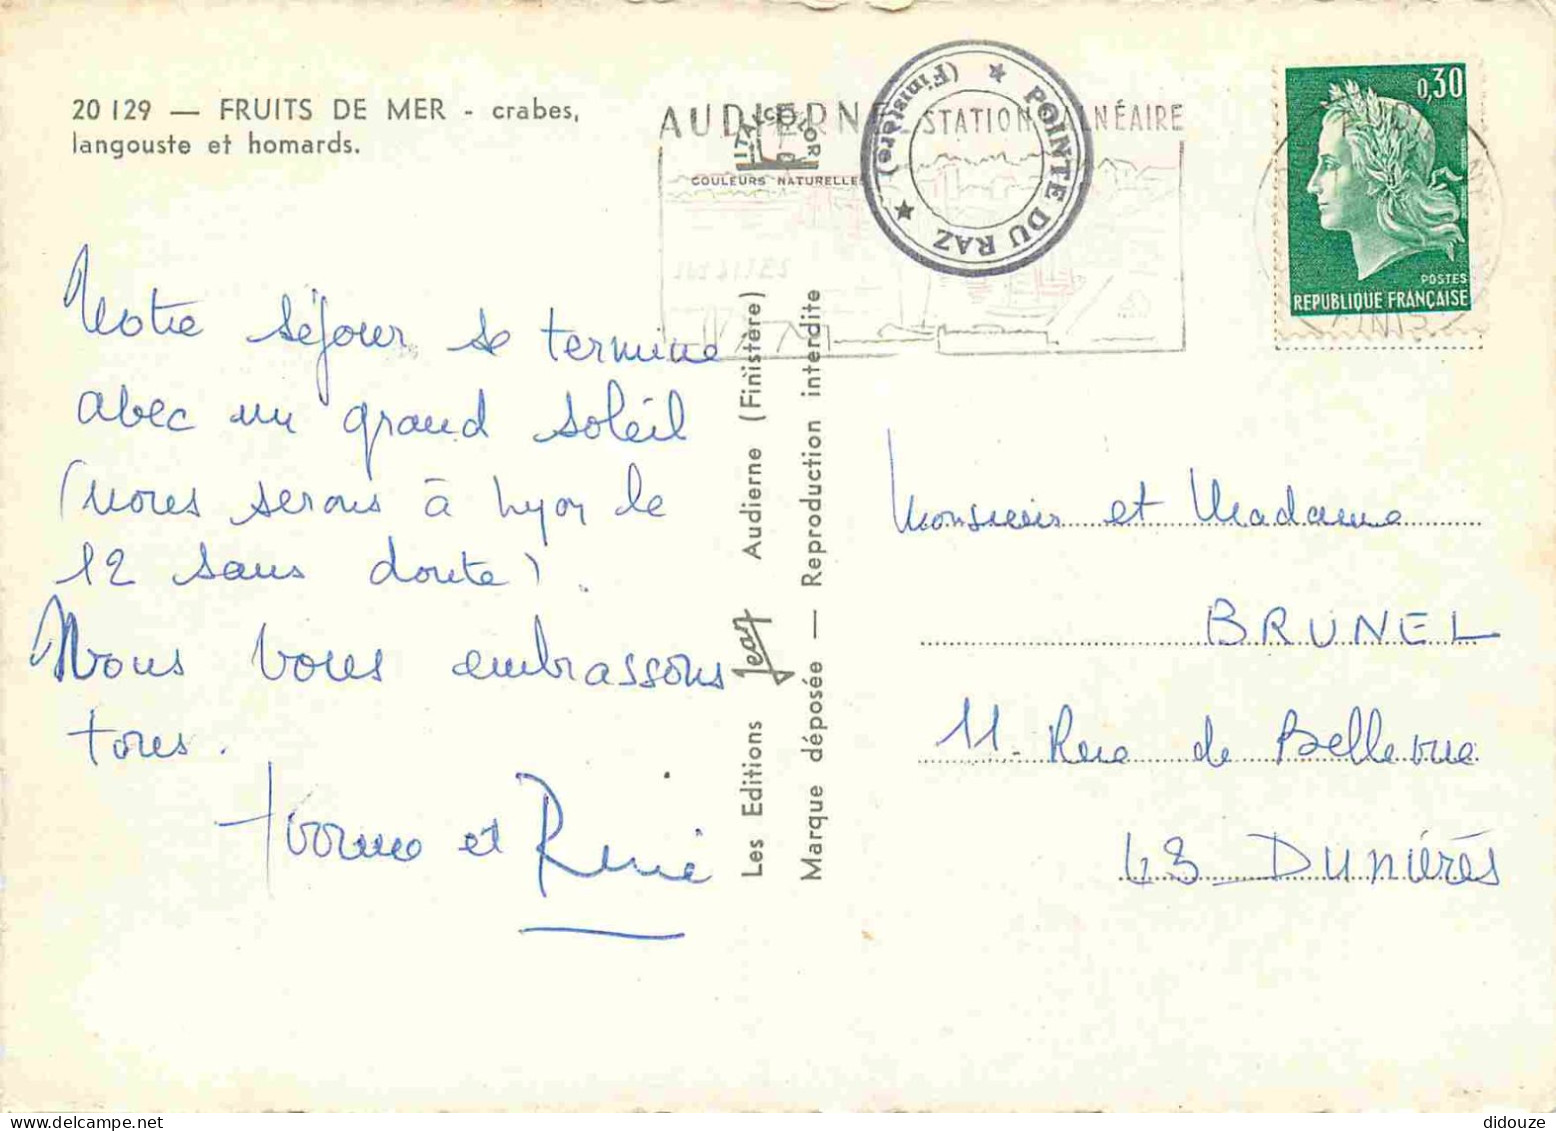 20 129 — FRUITS DE MER - crabes,
langouste et homards.
AUDIERNE STATION BALNÉAIRE
ITALCOLOR
COULEURS NATURELLES
★ POINTE DU RAZ ★ (Finistère)
0,30
POSTES
REPUBLIQUE FRANÇAISE
Notre séjour se termine
avec un grand soleil
(nous serons à Lyon le
12 sans doute).
Nous vous embrassons
tous.
Yvonne et René
Les Editions Jean Audierne (Finistère)
Marque déposée — Reproduction interdite
Monsieur et Madame
BRUNEL
11 - Rue de Bellevue
43 DUNIÉRÉS
didouze